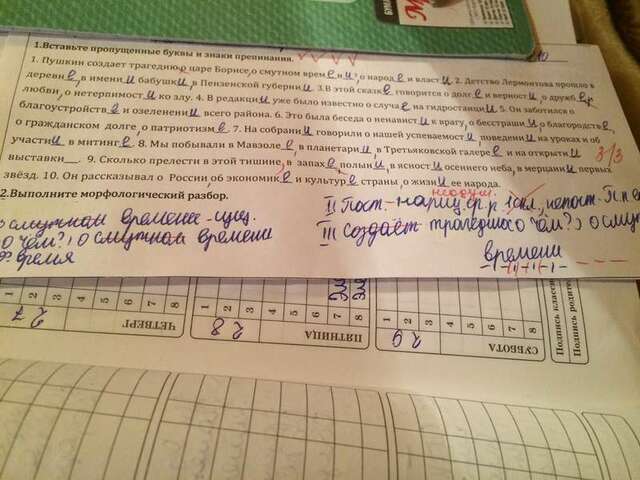 1.Вставьте пропущенные буквы и знаки препинания. VVVV
1. Пушкин создает трагедию о царе Борисе, о смутном времени, о народе и власти. 2. Детство Лермонтова прошло в
деревне, в имении бабушки, в Пензенской губернии. 3. В этой сказке говорится о долге и верности, о дружбе,
любви, о нетерпимости ко злу. 4. В редакции уже было известно о случае на гидростанции. 5. Он заботился о
благоустройстве и озеленении всего района. 6. Это была беседа о ненависти к врагу, о бесстрашии, о благородстве,
о гражданском долге, о патриотизме. 7. На собрании говорили о нашей успеваемости, поведении на уроках и об
участии в митинге. 8. Мы побывали в Мавзолее, в планетарии, в Третьяковской галерее и на открытии
выставки__. 9. Сколько прелести в этой тишине, в запахе полыни, в ясности осеннего неба, в мерцании первых
звёзд. 10. Он рассказывал о России, об экономике и культуре страны, о жизни ее народа.
3/3
2.Выполните морфологический разбор.
о смутном времени - сущ.
о чём?) о смутном времени
время
неодуш.
II Пост. - нариц. ср. р. скл., непост. - П.п. е
III Создаёт трагедию (о чём?) о сму
времени
ЧЕТВЕРГ
1
2
27
ПЯТНИЦА
1
2
3
4
5
6
7
8
28
СУББОТА
1
2
3
4
5
6
7
8
29
Подпись класс
Подпись родител